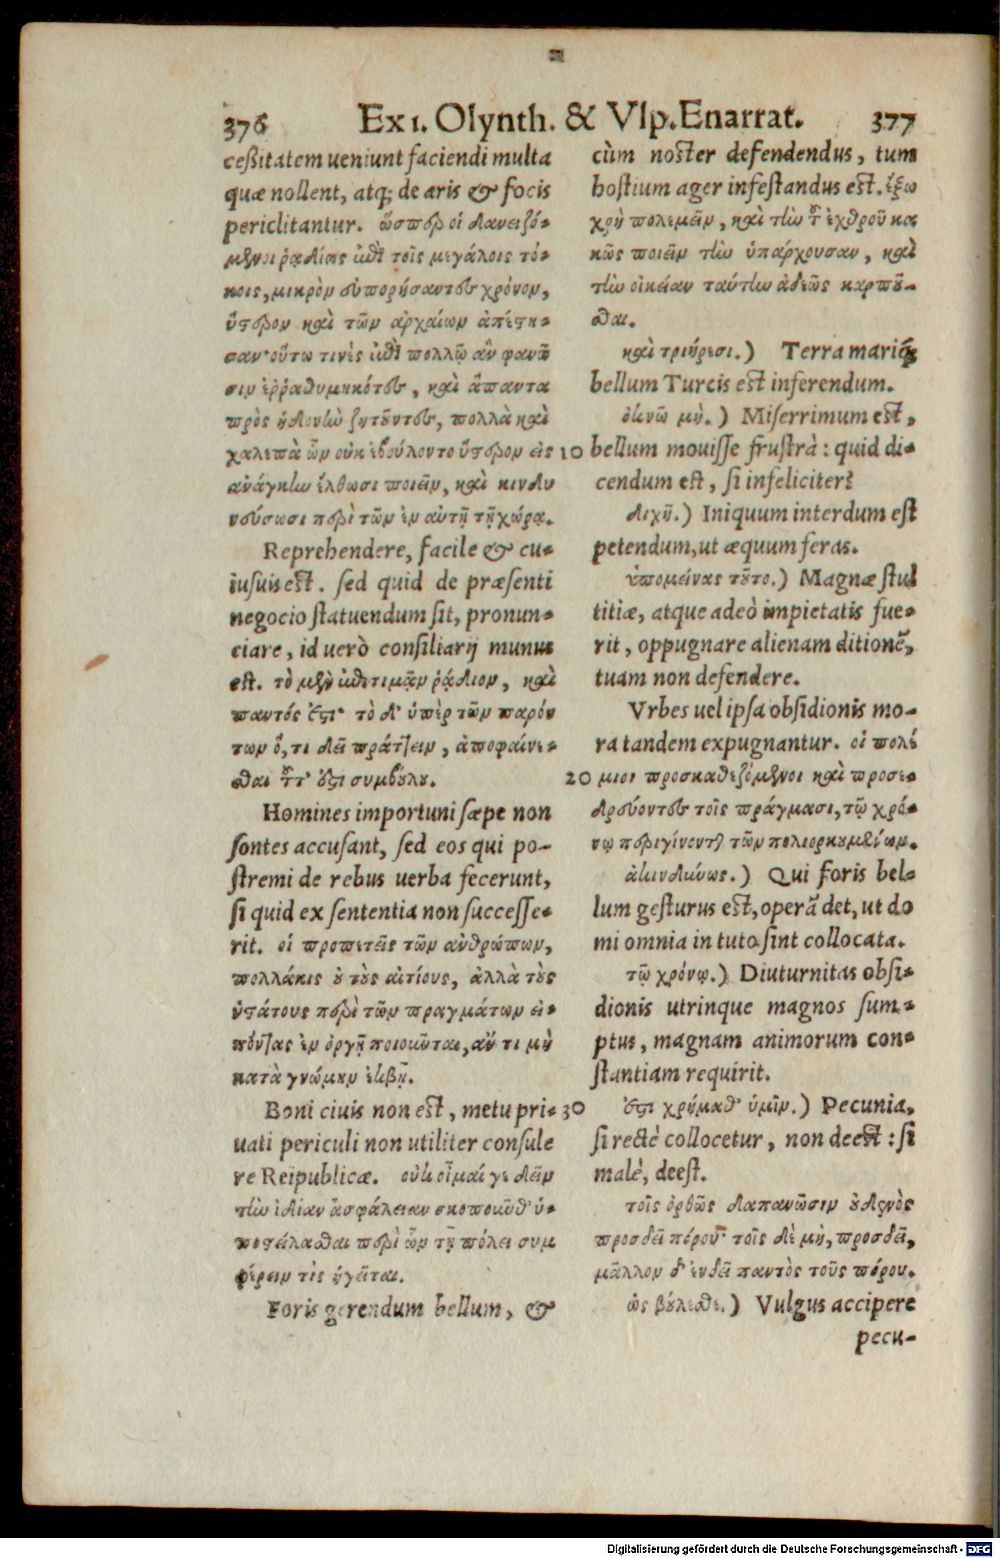 376 Ex 1. Olynth. & Vlp. Enarrat. 377
ceßitatem ueniunt faciendi multa
quæ nollent, atq; de aris & focis
periclitantur. ὥσπερ οἱ δανειζό-
μενοι ῥᾳδίως ἐπὶ τοῖς μεγάλοις τό-
κοις, μικρὸν εὐπορήσαντες χρόνον,
ὕστερον καὶ τῶν ἀρχαίων ἀπέστη-
σαν· οὕτω τινὲς ἐπὶ πολλῷ ἂν φανῶ
σιν ἐῤῥαθυμηκότες, καὶ ἅπαντα
πρὸς ἡδονὴν ζητοῦντες, πολλὰ καὶ
χαλεπὰ ὧν οὐκ ἐβούλοντο ὕστερον εἰς
ἀνάγκην ἔλθωσι ποιεῖν, καὶ κινδυ
νεύσωσι περὶ τῶν ἐν αὐτῇ τῇ χώρᾳ.
Reprehendere, facile & cu-
iusuis est. sed quid de præsenti
negocio statuendum sit, pronun-
ciare, id uerò consiliarij munus
est. τὸ μὲν ἐπιτιμᾷν ῥᾴδιον, καὶ
παντός ἐστι· τὸ δ' ὑπὲρ τῶν παρόν
των ὅ, τι δεῖ πράττειν, ἀποφαίνε-
σθαι τοῦτ' ἔστι συμβούλου.
Homines importuni sæpe non
sontes accusant, sed eos qui po-
stremi de rebus uerba fecerunt,
si quid ex sententia non successe-
rit. οἱ προπετεῖς τῶν ἀνθρώπων,
πολλάκις οὐ τοὺς αἰτίους, ἀλλὰ τοὺς
ὑστάτους περὶ τῶν πραγμάτων εἰ-
πόντας ἐν ὀργῇ ποιοῦνται, ἄν τι μὴ
κατὰ γνώμην ἐκβῇ.
Boni ciuis non est, metu pri-
uati periculi non utiliter consule
re Reipublicæ. οὐκ οἶμαί γε δεῖν
τὴν ἰδίαν ἀσφάλειαν σκοποῦνθ' ὑ-
ποστείλασθαι περὶ ὧν τῇ πόλει συμ
φέρειν τὶς ἡγεῖται.
Foris gerendum bellum, &
cùm noster defendendus, tum
hostium ager infestandus est. ἔξω
χρὴ πολεμεῖν, καὶ τὴν τῶν ἐχθροῦ κα
κῶς ποιεῖν τὴν ὑπάρχουσαν, καὶ
τὴν οἰκείαν ταύτην ἀδεῶς καρποῦ-
σθαι.
καὶ τριήρεσι.) Terra mariq;
bellum Turcis est inferendum.
ὀκνῶ μὴ.) Miserrimum est,
10 bellum mouisse frustrà: quid di-
cendum est, si infeliciter?
διχῆ.) Iniquum interdum est
petendum, ut æquum feras.
ὑπομείνας τοῦτο.) Magnæ stul
titiæ, atque adeò impietatis fue-
rit, oppugnare alienam ditionẽ,
tuam non defendere.
Vrbes uel ipsa obsidionis mo-
ra tandem expugnantur. οἱ πολέ
20 μιοι προσκαθεζόμενοι καὶ προσε-
δρεύοντες τοῖς πράγμασι, τῷ χρό-
νῳ περιγίνοντ) τῶν πολιορκουμένων.
ἀκινδύνως.) Qui foris bel-
lum gesturus est, operã det, ut do
mi omnia in tuto sint collocata.
τῷ χρόνῳ.) Diuturnitas obsi-
dionis utrinque magnos sum-
ptus, magnam animorum con-
stantiam requirit.
30 ἔστι χρήμαθ' ὑμῖν.) Pecunia,
si rectè collocetur, non deest: si
malè, deest.
τοῖς ὀρθῶς δαπανῶσιν οὐδενὸς
προσδεῖ πόρου· τοῖς δὲ μὴ, προσδεῖ,
μᾶλλον δ' ἐνδεῖ παντὸς τοῦς πόρου.
ὡς βούλεσθε.) Vulgus accipere
pecu-
Digitalisierung gefördert durch die Deutsche Forschungsgemeinschaft - DFG